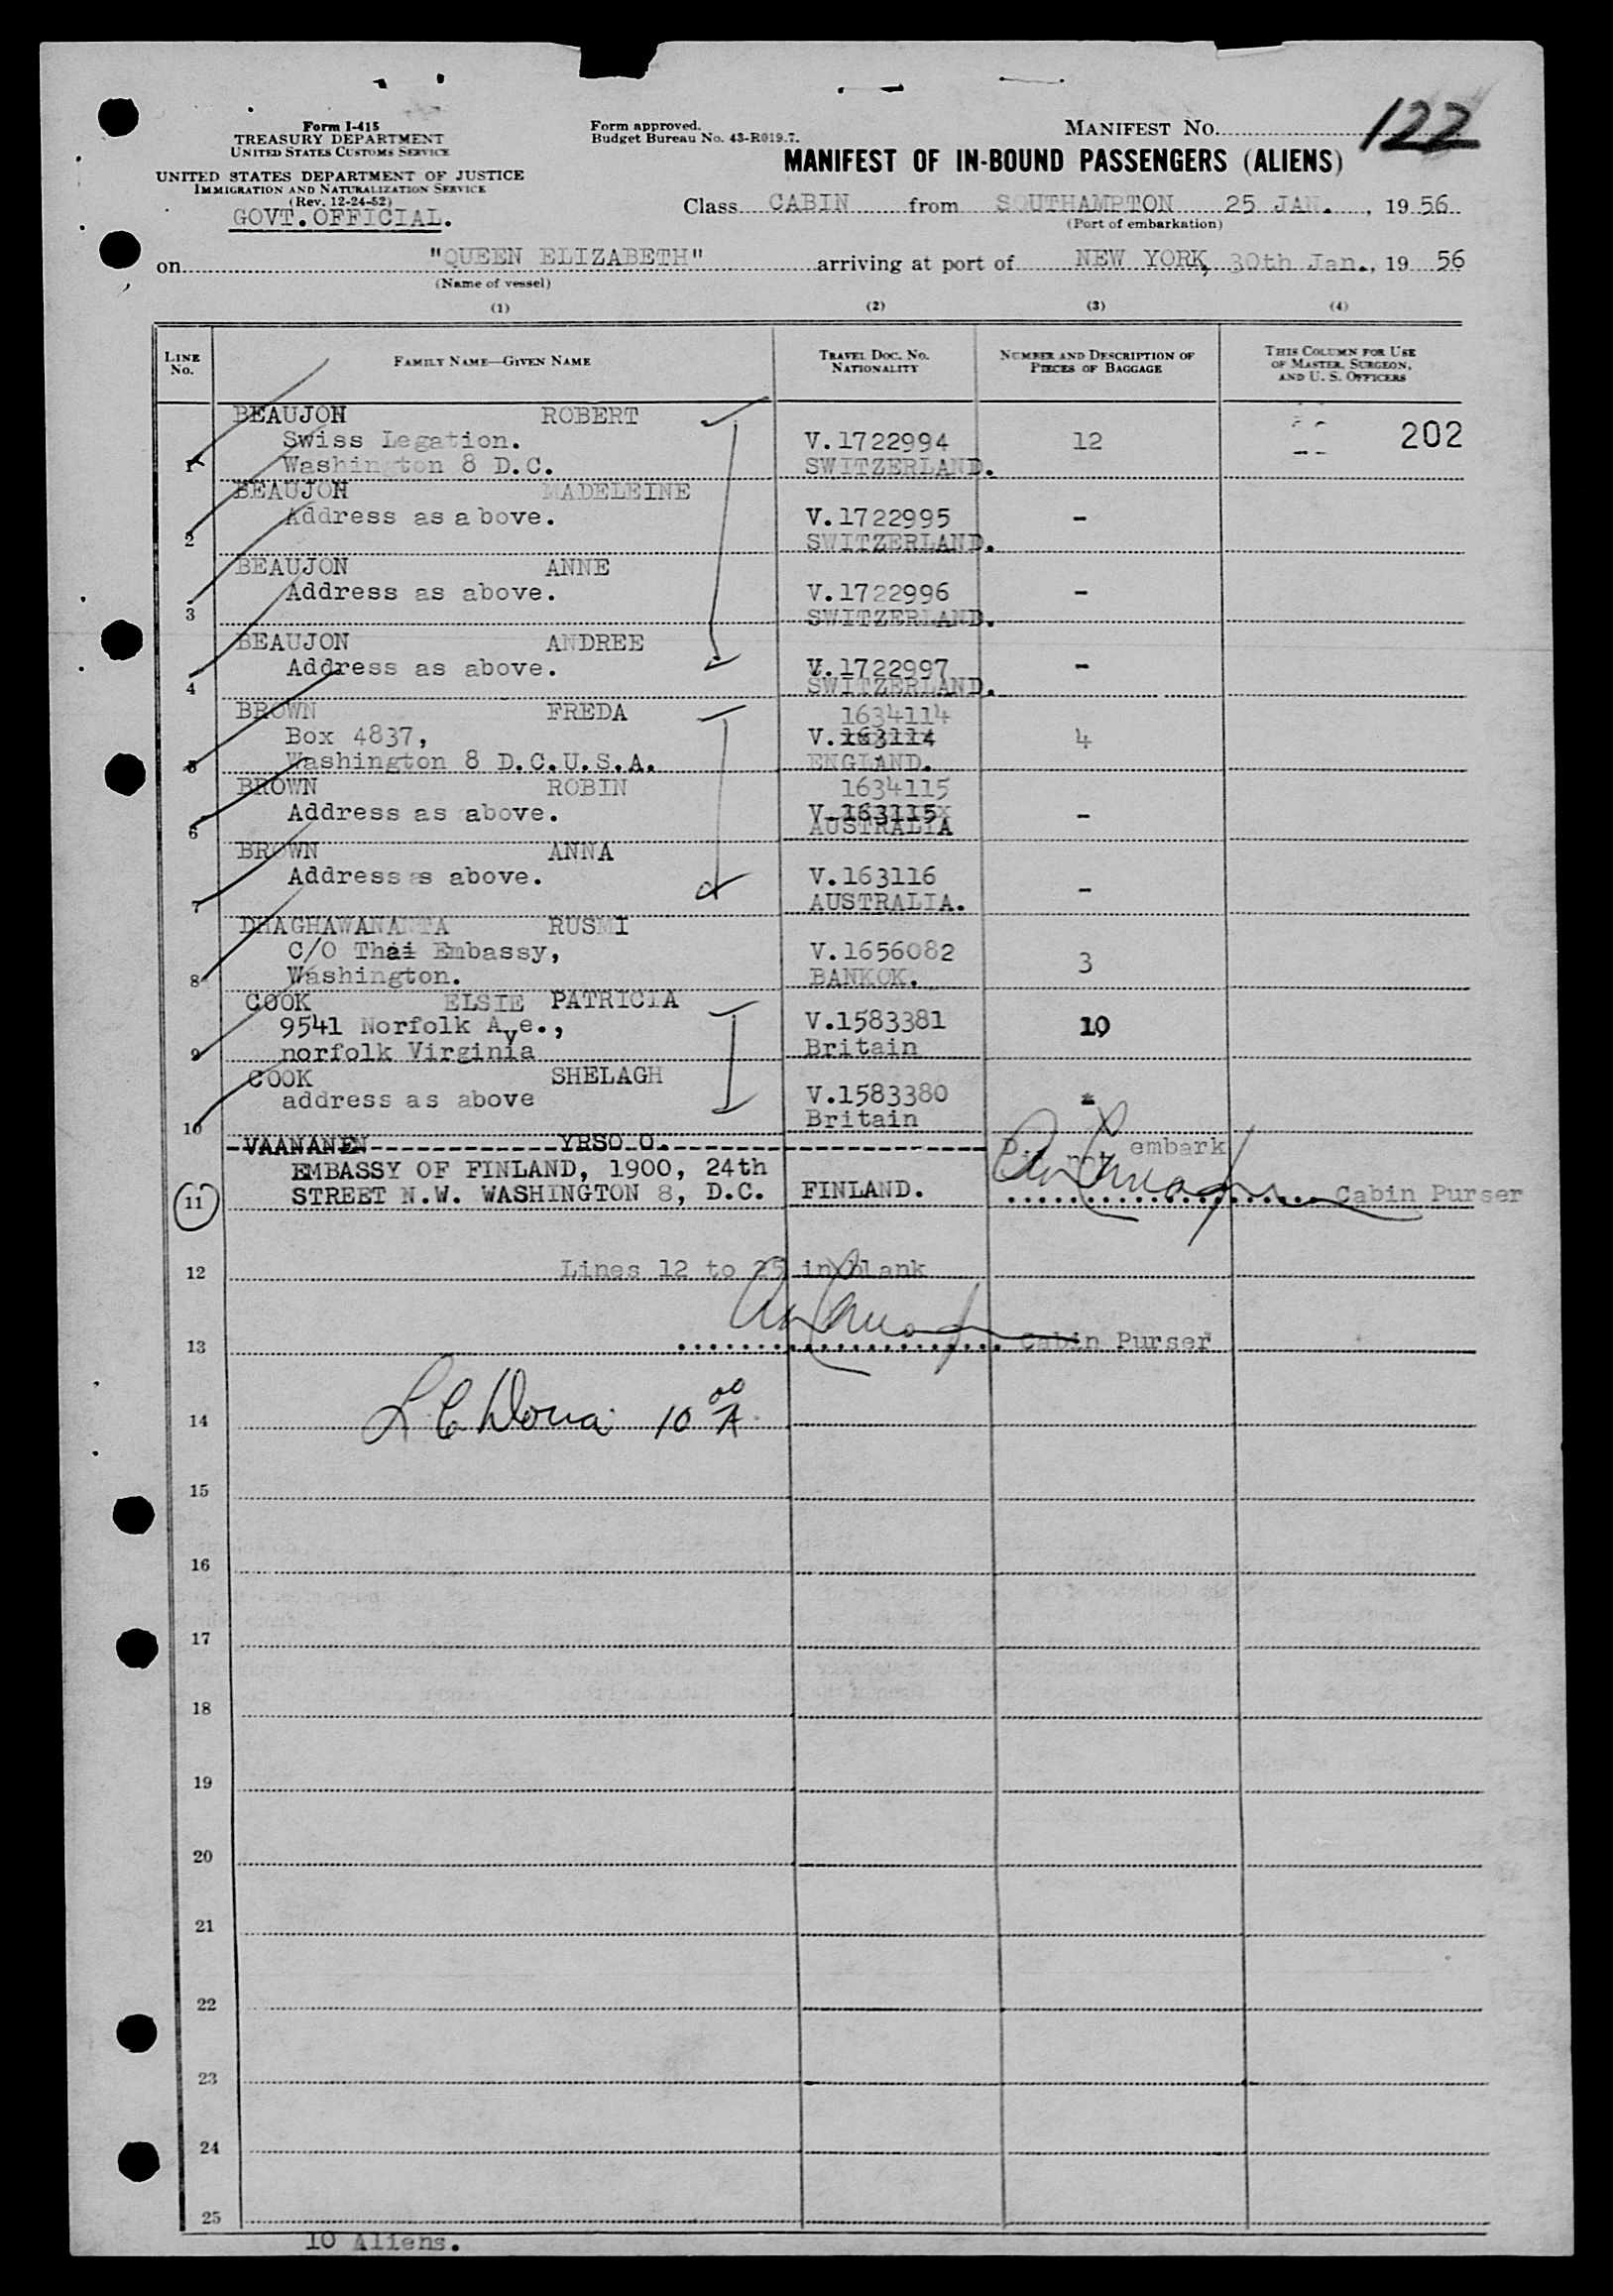 122
Form I-415
TREASURY DEPARTMENT
UNITED STATES CUSTOMS SERVICE
UNITED STATES DEPARTMENT OF JUSTICE
IMMIGRATION AND NATURALIZATION SERVICE
(Rev. 12-24-52)
GOVT.OFFICIAL.
Form approved.
Budget Bureau No. 43-R019.7.
MANIFEST NO.
MANIFEST OF IN-BOUND PASSENGERS (ALIENS)
Class CABIN from SOUTHAMPTON 25 JAN., 19 56
(Port of embarkation)
on "QUEEN ELIZABETH" arriving at port of NEW YORK, 30th Jan., 19 56
(Name of vessel)
(1) (2) (3) (4)
LINE NO. FAMILY NAME—GIVEN NAME TRAVEL DOC. NO. NATIONALITY NUMBER AND DESCRIPTION OF PIECES OF BAGGAGE THIS COLUMN FOR USE OF MASTER, SURGEON, AND U. S. OFFICERS
BEAUJON ROBERT
Swiss Legation. V.1722994 12 202
1 Washington 8 D.C. SWITZERLAND.
BEAUJON MADELEINE
Address as above. V.1722995 -
2 SWITZERLAND.
BEAUJON ANNE
Address as above. V.1722996 -
3 SWITZERLAND.
BEAUJON ANDREE
Address as above. V.1722997 -
4 SWITZERLAND.
BROWN FREDA 1634114
Box 4837, V.163114 4
5 Washington 8 D.C.U.S.A. ENGLAND.
BROWN ROBIN 1634115
Address as above. V.163115 -
6 AUSTRALIA
BROWN ANNA
Address as above. V.163116 -
7 AUSTRALIA.
DHAGHAWANANTA RUSMI
C/O Thai Embassy, V.1656082 3
8 Washington. BANKOK.
COOK ELSIE PATRICIA
9541 Norfolk Ave., V.1583381 10
9 norfolk Virginia Britain
COOK SHELAGH
address as above V.1583380 -
10 Britain
VAANANEN YRSO O. embark
EMBASSY OF FINLAND, 1900, 24th
11 STREET N.W. WASHINGTON 8, D.C. FINLAND. Cabin Purser
12 Lines 12 to 25 in blank
13 Cabin Purser
14 10 00 A
15
16
17
18
19
20
21
22
23
24
25
10 Aliens.